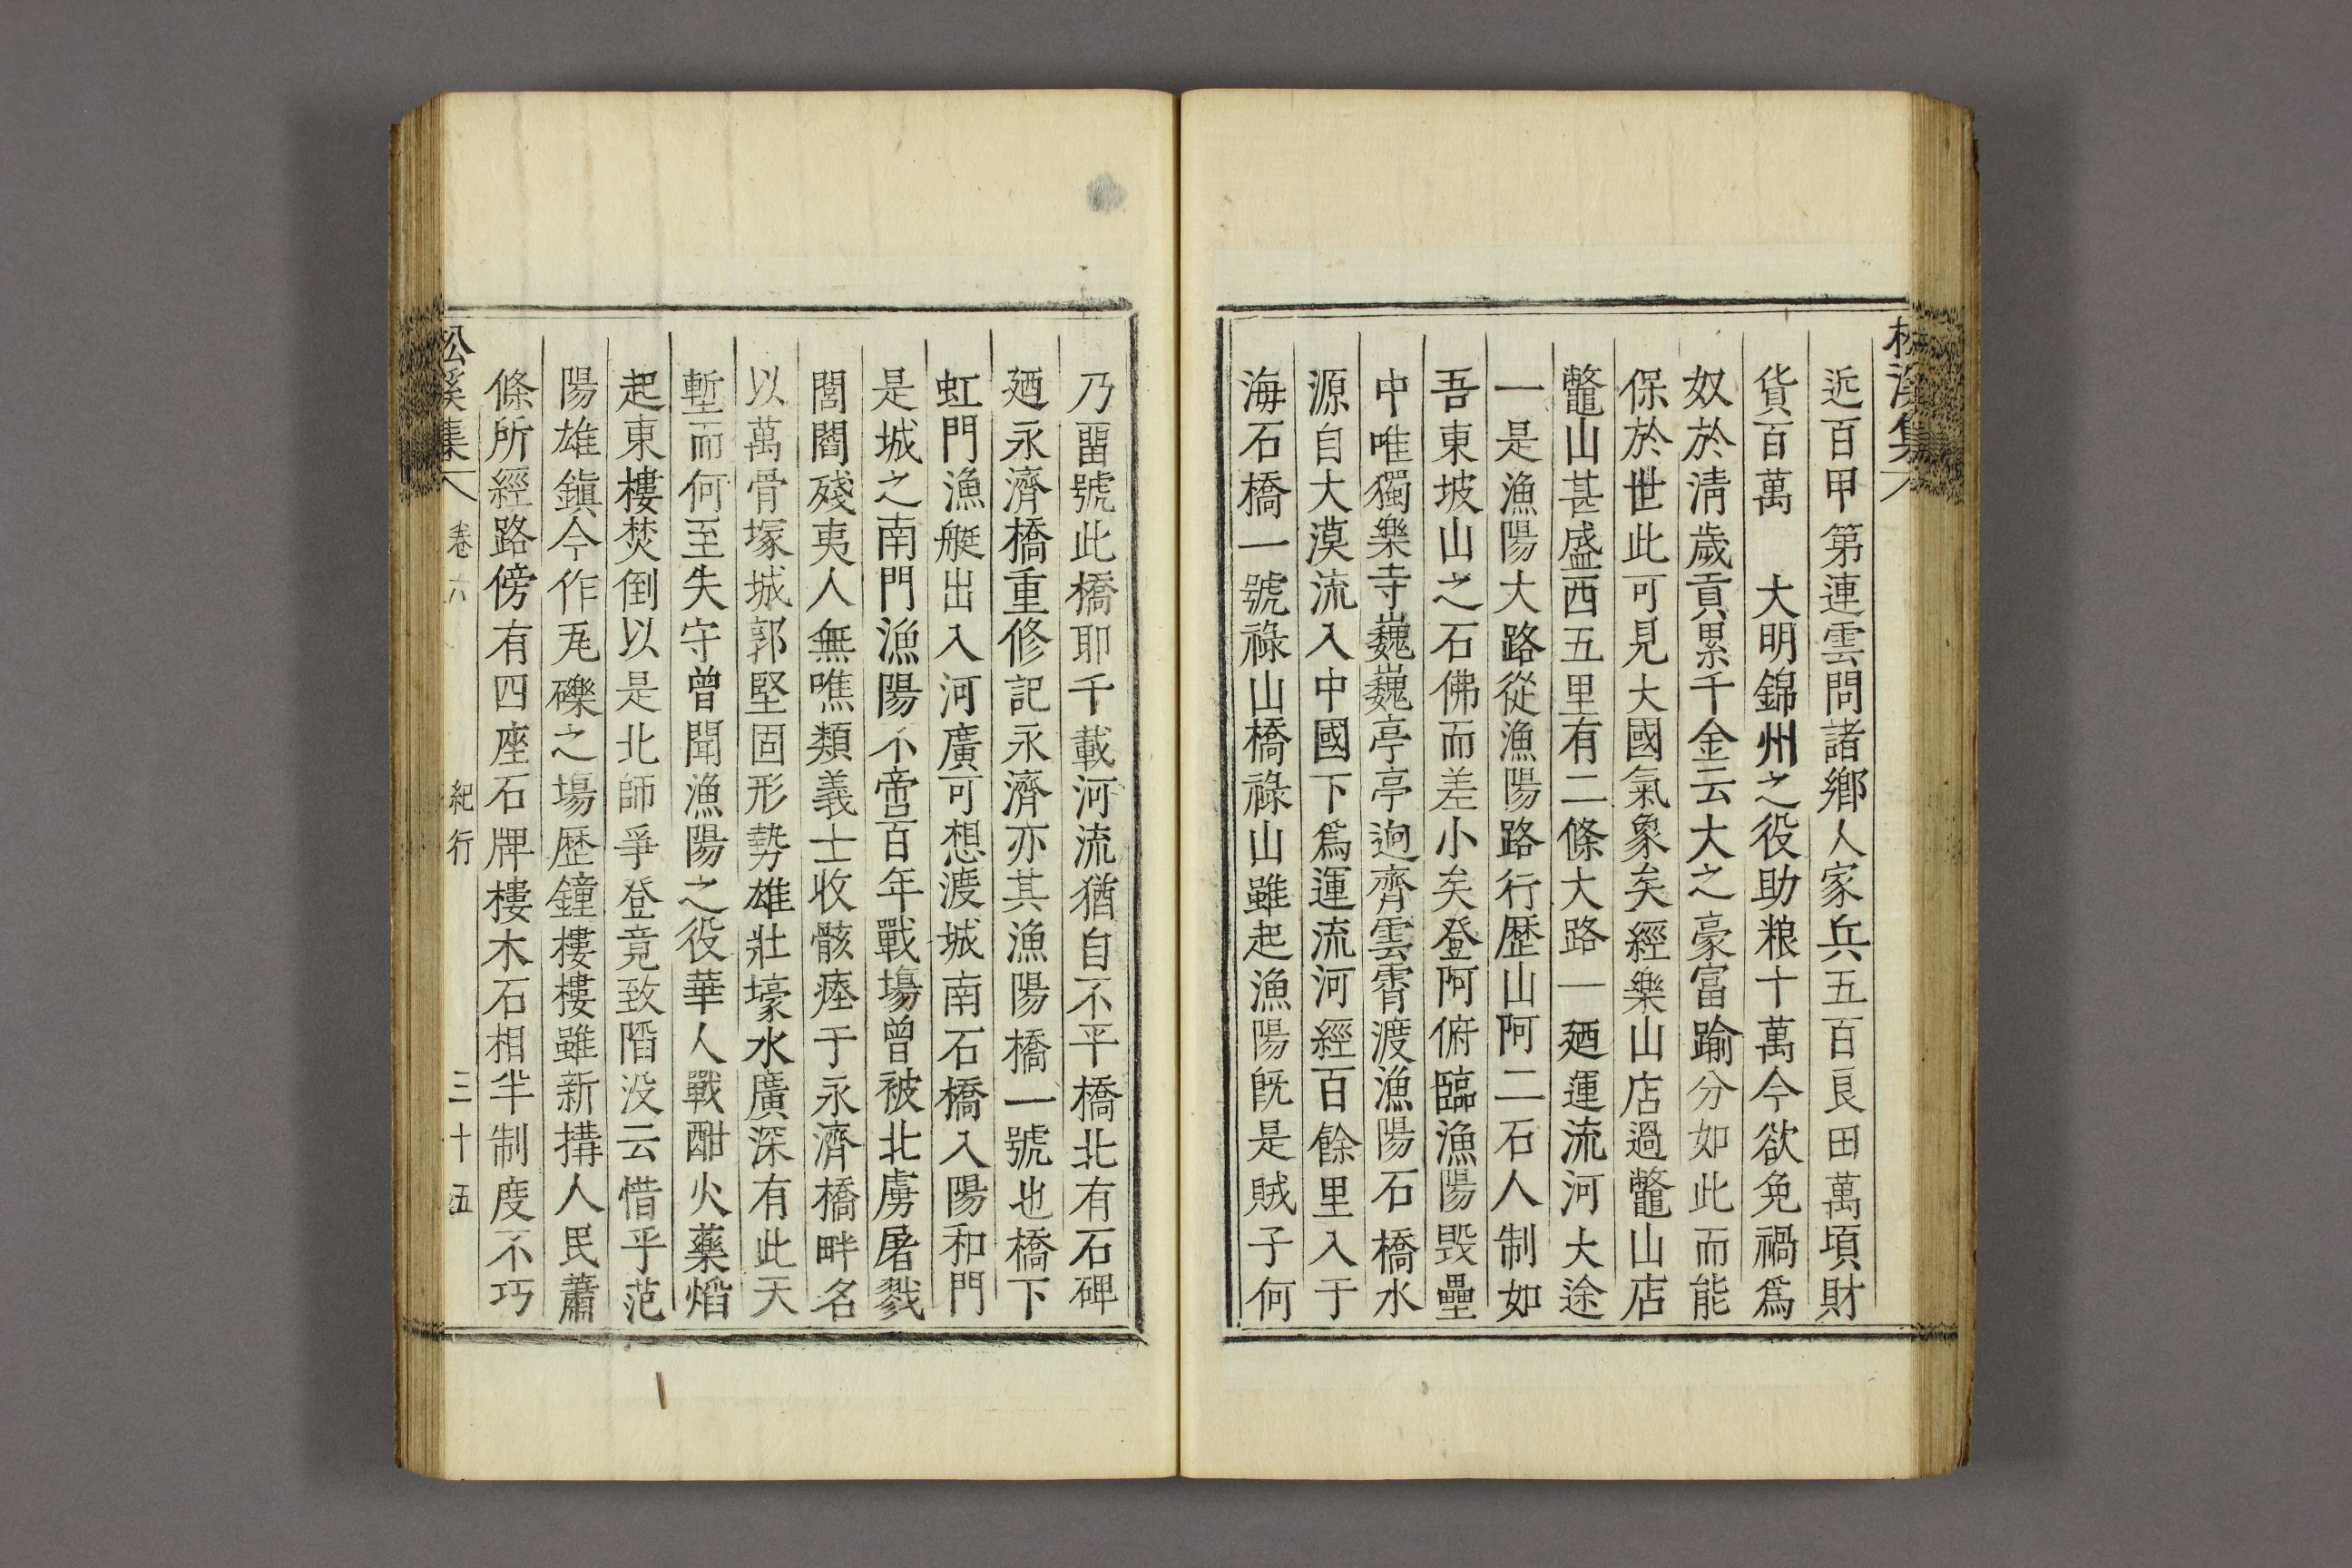 松溪集
近百甲第連雲問諸鄉人家兵五百良田萬頃財
貨百萬　大明錦州之役助粮十萬今欲免禍爲
奴於淸歲貢累千金云大之豪富踰分如此而能
保於世此可見大國氣象矣經樂山店過鼈山店
鼈山甚盛西五里有二條大路一廼運流河大途
一是漁陽大路從漁陽路行歷山阿二石人制如
吾東坡山之石佛而差小矣登阿俯臨漁陽毁壘
中唯獨樂寺巍巍亭亭逈齊雲霄渡漁陽石橋水
源自大漠流入中國下爲運流河經百餘里入于
海石橋一號祿山橋祿山雖起漁陽旣是賊子何
乃畱號此橋耶千載河流猶自不平橋北有石碑
廼永濟橋重修記永濟亦其漁陽橋一號也橋下
虹門漁艇出入河廣可想渡城南石橋入陽和門
是城之南門漁陽不啻百年戰塲曾被北虜屠戮
閭閻殘夷人無噍類義士收骸瘞于永濟橋畔名
以萬骨塚城郭堅固形勢雄壯壕水廣深有此天
塹而何至失守曾聞漁陽之役華人戰酣火藥熖
起東樓焚倒以是北師爭登竟致陷没云惜乎范
陽雄鎭今作瓦礫之塲歷鐘樓樓雖新搆人民蕭
條所經路傍有四座石牌樓木石相半制度不巧
松溪集
卷六
紀行
三十五